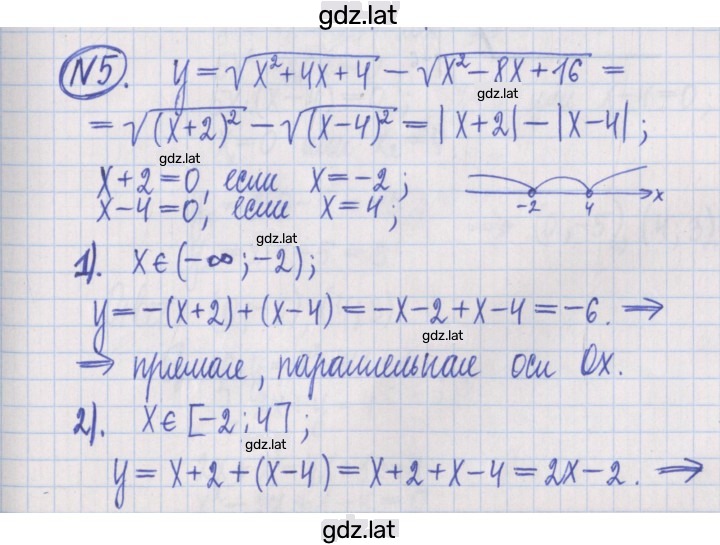 gdz.lat
№5. y = √(x²+4x+4) − √(x²−8x+16) =
gdz.lat
= √((x+2)²) − √((x−4)²) = |x+2| − |x−4| ;
gdz.lat
x+2=0, если x=−2 ;
x−4=0, если x=4 ;
−2 4 x
gdz.lat
1). x∈(−∞ ; −2) ;
y = −(x+2)+(x−4) = −x−2+x−4 = −6. ⇒
gdz.lat
⇒ прямая, параллельная оси Ox.
2). x∈[−2 ; 4] ;
gdz.lat
y = x+2+(x−4) = x+2+x−4 = 2x−2. ⇒
gdz.lat